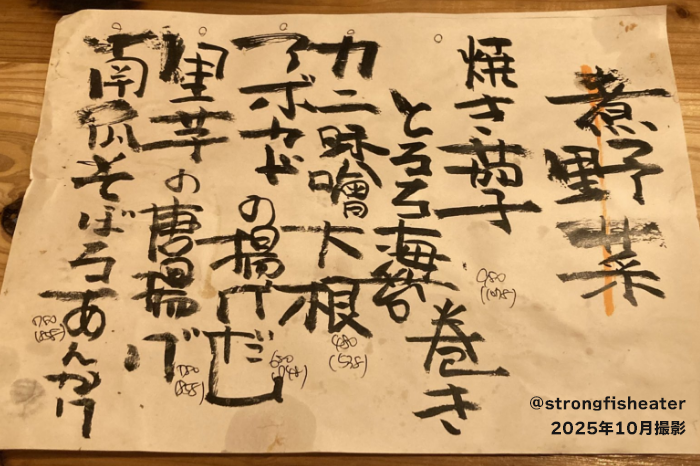 煮野菜
焼き茄子
とろろ海苔巻き
980
(1078)
カニ味噌大根
480
(528)
アボカドの揚げだし
680
(748)
里芋の唐揚げ
780
(858)
南瓜そぼろあんかけ
780
(858)
@strongfisheater
2025年10月撮影